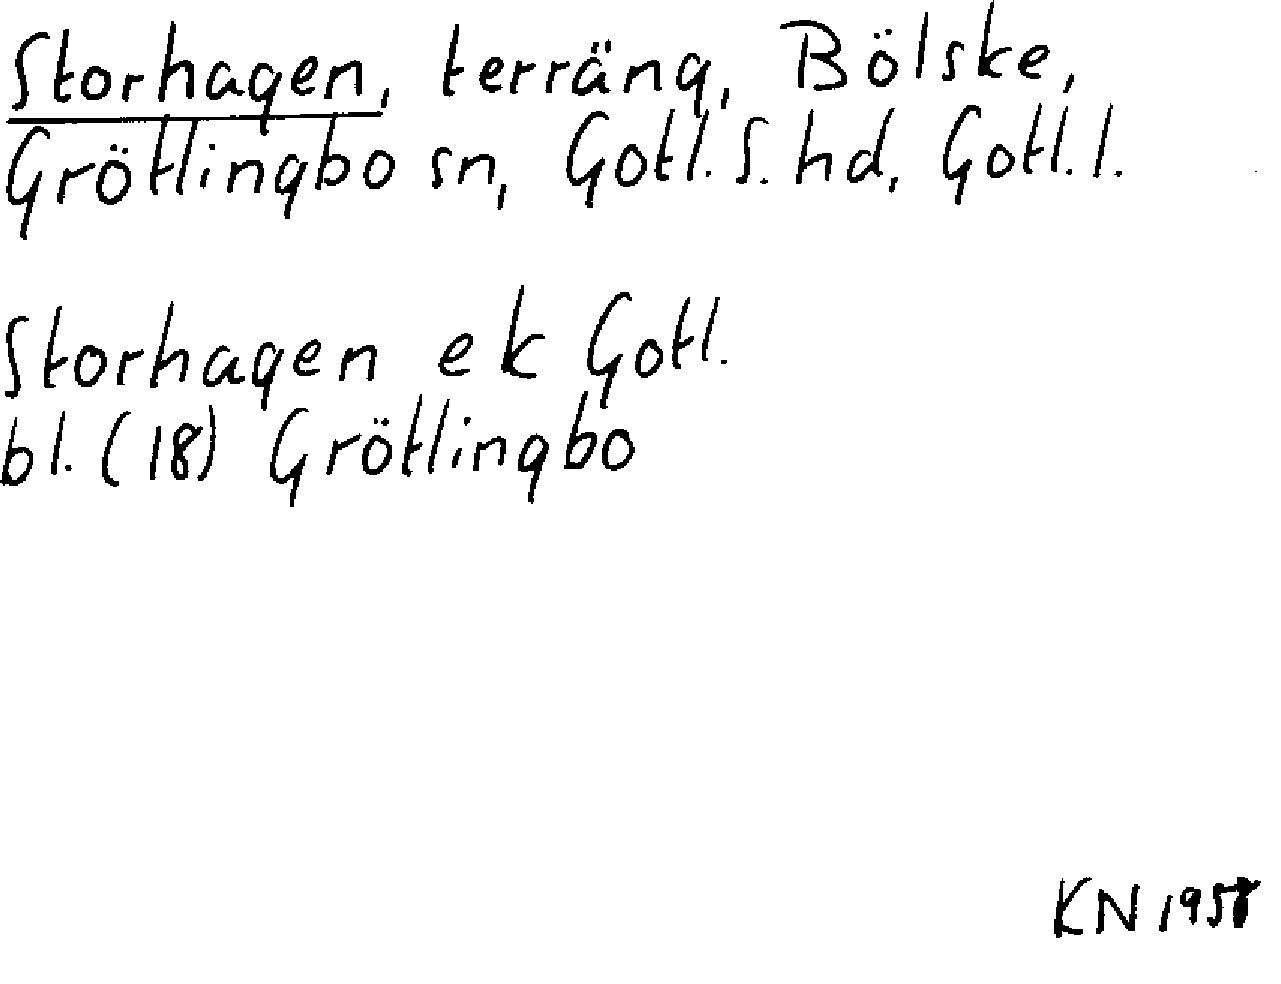 Storhagen, terräng, Bölske,
Grötlingbo sn, Gotl. S. hd, Gotl. l.
Storhagen ek Gotl.
bl. (18) Grötlingbo
KN